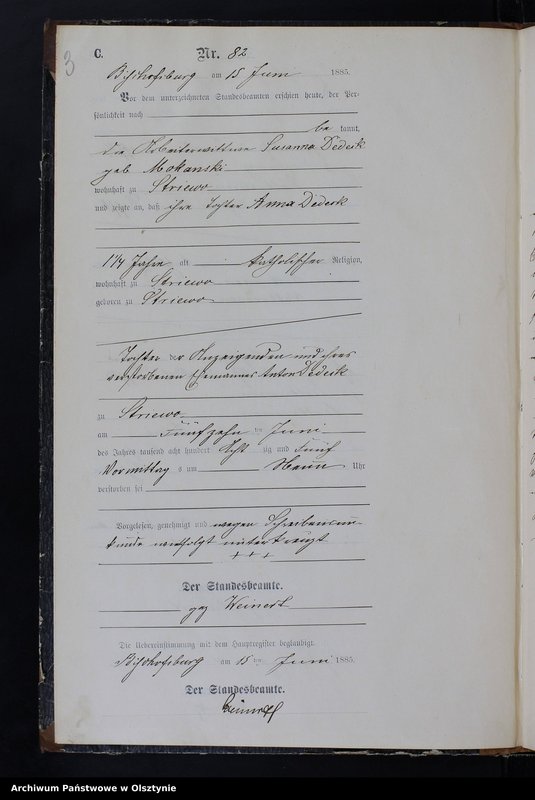 3
C. Nr. 82
Bischofsburg am 15 Juni 1885.
Vor dem unterzeichneten Standesbeamten erschien heute, der Per-
sönlichkeit nach
be kannt,
die Arbeiterwittwe Susanna Dedeck
geb Mokanski
wohnhaft zu Striewo
und zeigte an, daß ihre Tochter Anna Dedeck
1 1/4 Jahre alt katholischer Religion,
wohnhaft zu Striewo
geboren zu Striewo
Tochter der Anzeigenden und ihres
verstorbenen Ehemannes Anton Dedeck
zu Striewo
am Fünfzehn ten Juni
des Jahres tausend acht hundert Acht zig und Fünf
Vormittag s um Neun Uhr
verstorben sei
Vorgelesen, genehmigt und wegen Schreibensun-
kunde unterkreuzt
+ + +
Der Standesbeamte.
gez Weinert
Die Uebereinstimmung mit dem Hauptregister beglaubigt.
Bischofsburg am 15 ten Juni 1885.
Der Standesbeamte.
Weinert
Archiwum Państwowe w Olsztynie